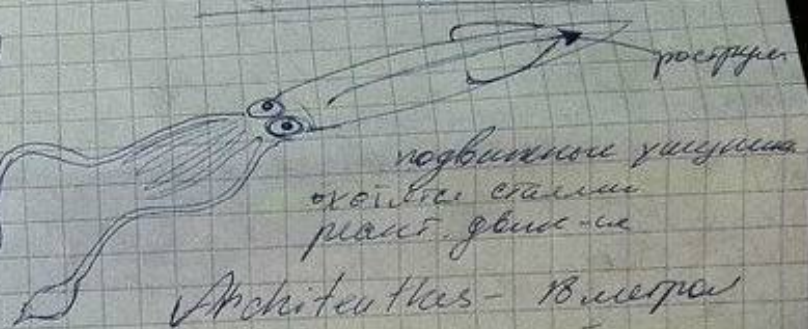 рострум
подвижные хищники
охотятся стаями
реакт. движ-ие
Architeuthis - 18 метров